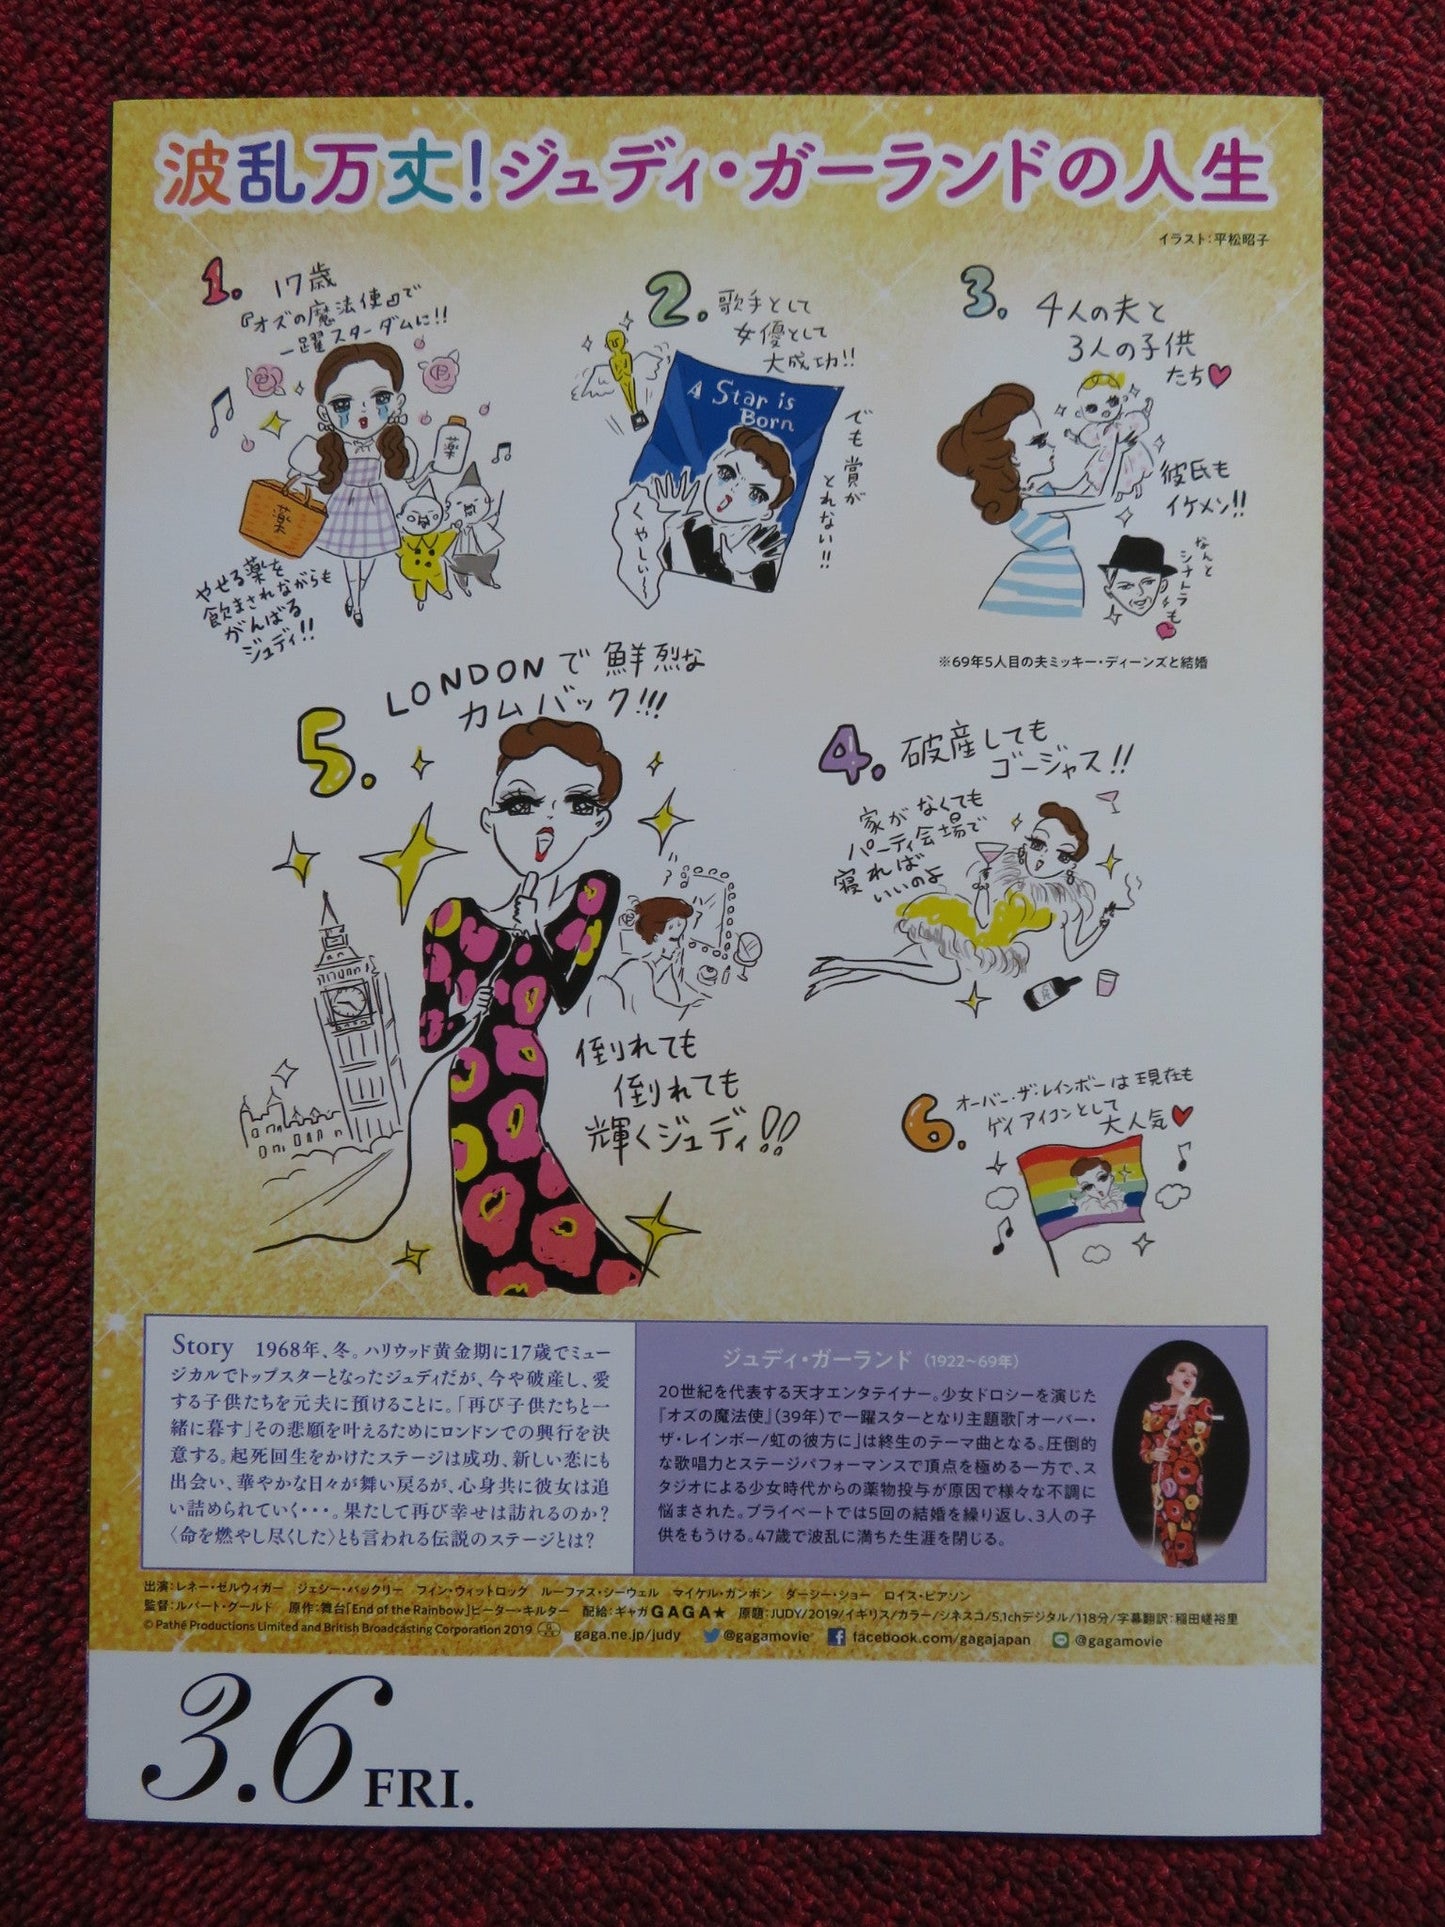 波乱万丈!ジュディ・ガーランドの人生
イラスト:平松昭子
1.
17歳
『オズの魔法使』で
一躍スターダムに!!
薬
薬
やせる薬を
飲まされながらも
がんばる
ジュディ!!
2.
歌手として
女優として
大成功!!
A Star is
Born
でも賞が
とれない!!
くやしい〜
3.
4人の夫と
3人の子供
たち♥
彼氏も
イケメン!!
なんと
シナトラも
※69年5人目の夫ミッキー・ディーンズと結婚
4.
破産しても
ゴージャス!!
家がなくても
パーティ会場で
寝れば
いいのよ
5.
LONDONで鮮烈な
カムバック!!!
倒れても
倒れても
輝くジュディ!!
6.
オーバー・ザ・レインボーは現在も
ゲイアイコンとして
大人気♥
Story 1968年、冬。ハリウッド黄金期に17歳でミュー
ジカルでトップスターとなったジュディだが、今や破産し、愛
する子供たちを元夫に預けることに。「再び子供たちと一
緒に暮す」その悲願を叶えるためにロンドンでの興行を決
意する。起死回生をかけたステージは成功、新しい恋にも
出会い、華やかな日々が舞い戻るが、心身共に彼女は追
い詰められていく・・・。果たして再び幸せは訪れるのか?
〈命を燃やし尽くした〉とも言われる伝説のステージとは?
ジュディ・ガーランド (1922~69年)
20世紀を代表する天才エンタテイナー。少女ドロシーを演じた
『オズの魔法使』(39年)で一躍スターとなり主題歌「オーバー・
ザ・レインボー/虹の彼方に」は終生のテーマ曲となる。圧倒的
な歌唱力とステージパフォーマンスで頂点を極める一方で、ス
タジオによる少女時代からの薬物投与が原因で様々な不調に
悩まされた。プライベートでは5回の結婚を繰り返し、3人の子
供をもうける。47歳で波乱に満ちた生涯を閉じる。
出演:レネー・ゼルウィガー ジェシー・バックリー フィン・ウィットロック ルーファス・シーウェル マイケル・ガンボン ダーシー・ショー ロイス・ピアソン
監督:ルパート・グールド 原作:舞台「End of the Rainbow」ピーター・キルター 配給:ギャガ GAGA★ 原題:JUDY/2019/イギリス/カラー/シネスコ/5.1chデジタル/118分/字幕翻訳:稲田嵯裕里
© Pathé Productions Limited and British Broadcasting Corporation 2019 gaga.ne.jp/judy @gagamovie facebook.com/gagajapan @gagamovie
3.6 FRI.